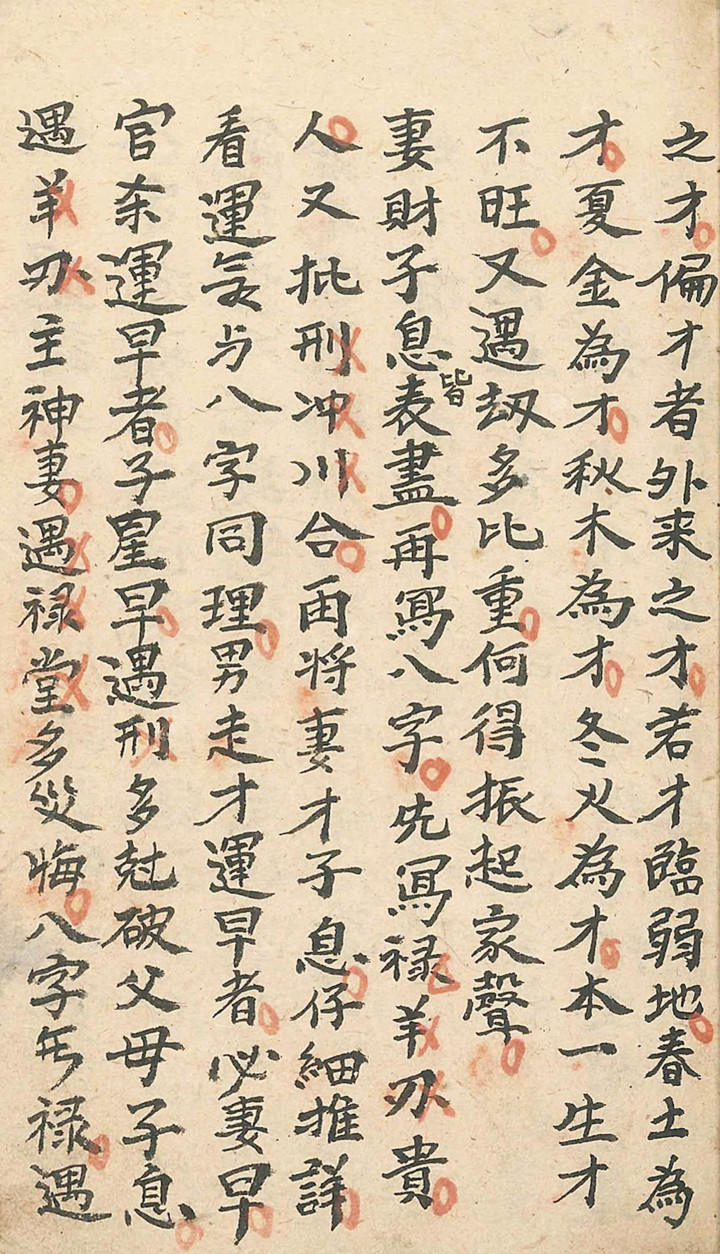 之才偏才者外来之才若才臨弱地春土為
才夏金為才秋木為才冬火為才本一生才
不旺又遇刼多比重何得振起家聲
妻財子息皆表盡再寫八字先寫禄羊刃貴
人又批刑冲川合再将妻才子息仔細推詳
看運氣与八字同理男走才運早者必妻早
官杀運早者子星早遇刑多尅破父母子息
遇羊刃主神妻遇禄堂多災悔八字無禄遇